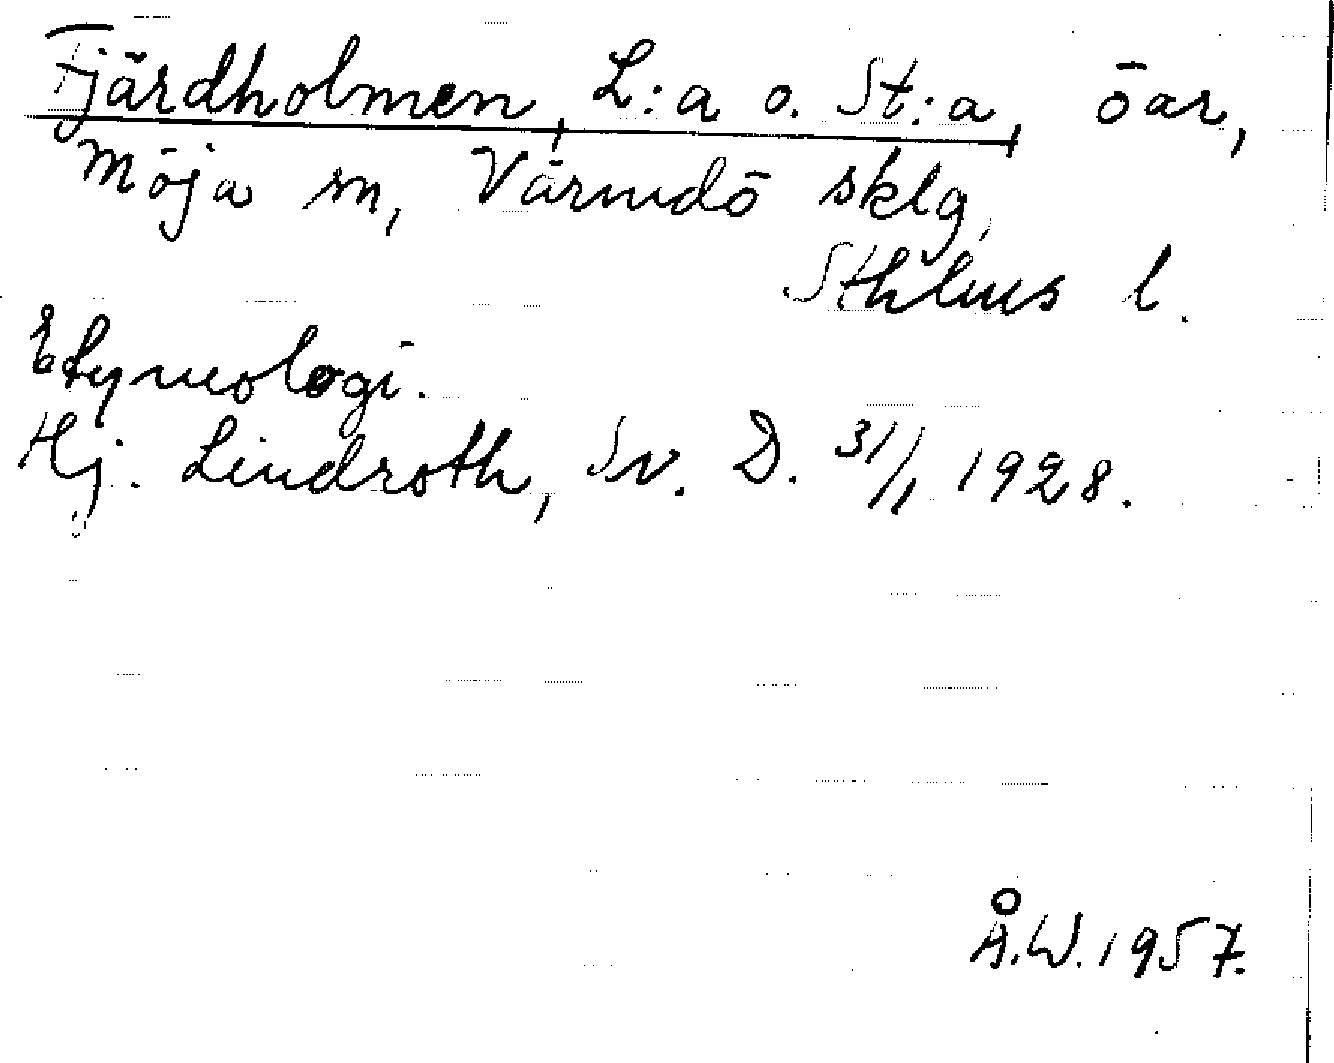 Fjärdholmen, L:a o. St:a, öar,
Möja sn, Värmdö sklg,
Sthlms l.
Etymologi.
Hj. Lindroth, Sv. D. 31/1 1928.
Å.W. 1957.